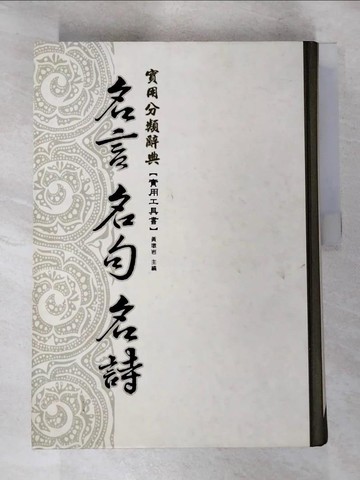 實用分類辭典
【實用工具書】
主編
名言 名句 名詩